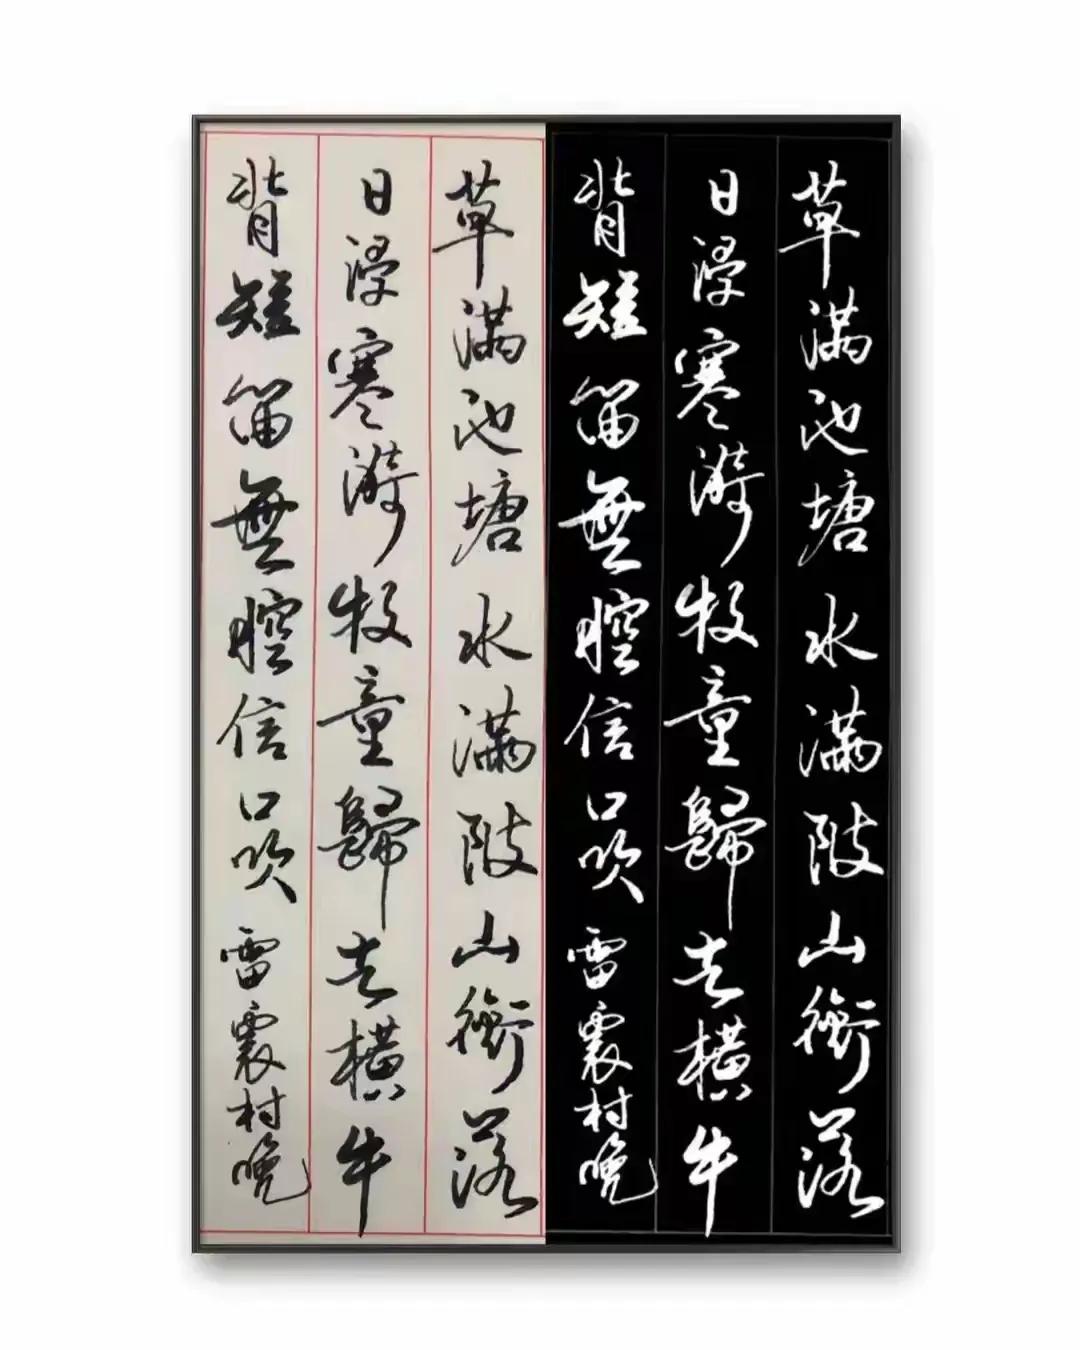 草滿池塘水滿陂山銜落
日浸寒漪牧童歸去橫牛
背短笛無腔信口吹雷震村晚
草滿池塘水滿陂山銜落
日浸寒漪牧童歸去橫牛
背短笛無腔信口吹雷震村晚